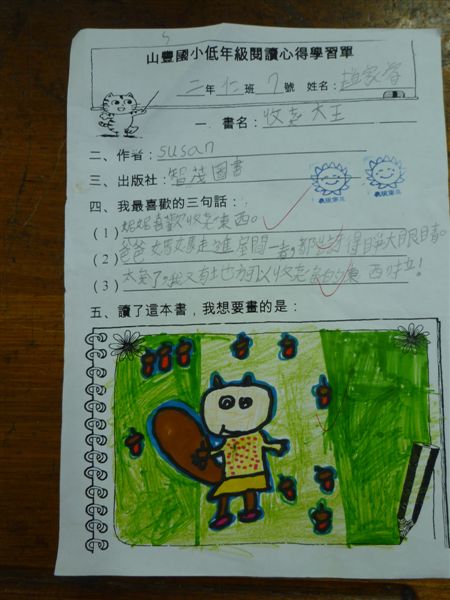 山豐國小低年級閱讀心得學習單
二年仁班7號 姓名：
一、書名：收集大王
二、作者：susan
三、出版社：智茂圖書
四、我最喜歡的三句話：
(1) 妮妮喜歡收集東西。
(2) 爸爸媽媽走進屋間一看，都得睜大眼睛。
(3) 太氣了，我又有地方可以收集東西時立！
五、讀了這本書，我想要畫的是：